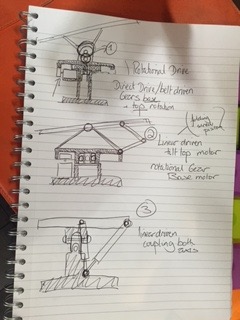 ①
Rotational Drive
Direct Drive/belt driven
Gears base
+ top rotation
②
Linear driven
tilt top motor
rotational Gear
Base motor
③
linear driven
coupling both
axis